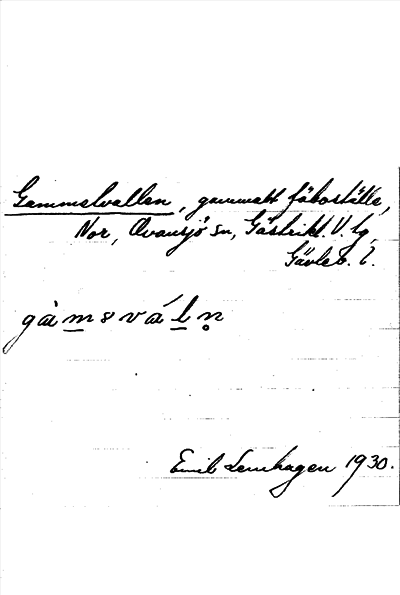 Gammelvallen, gammalt fäboställe,
Nor, Ovansjö sn, Gästrikl. V. tg,
Gävleb. l.
gàmsváln̥
Emil Lenhagen 1930.